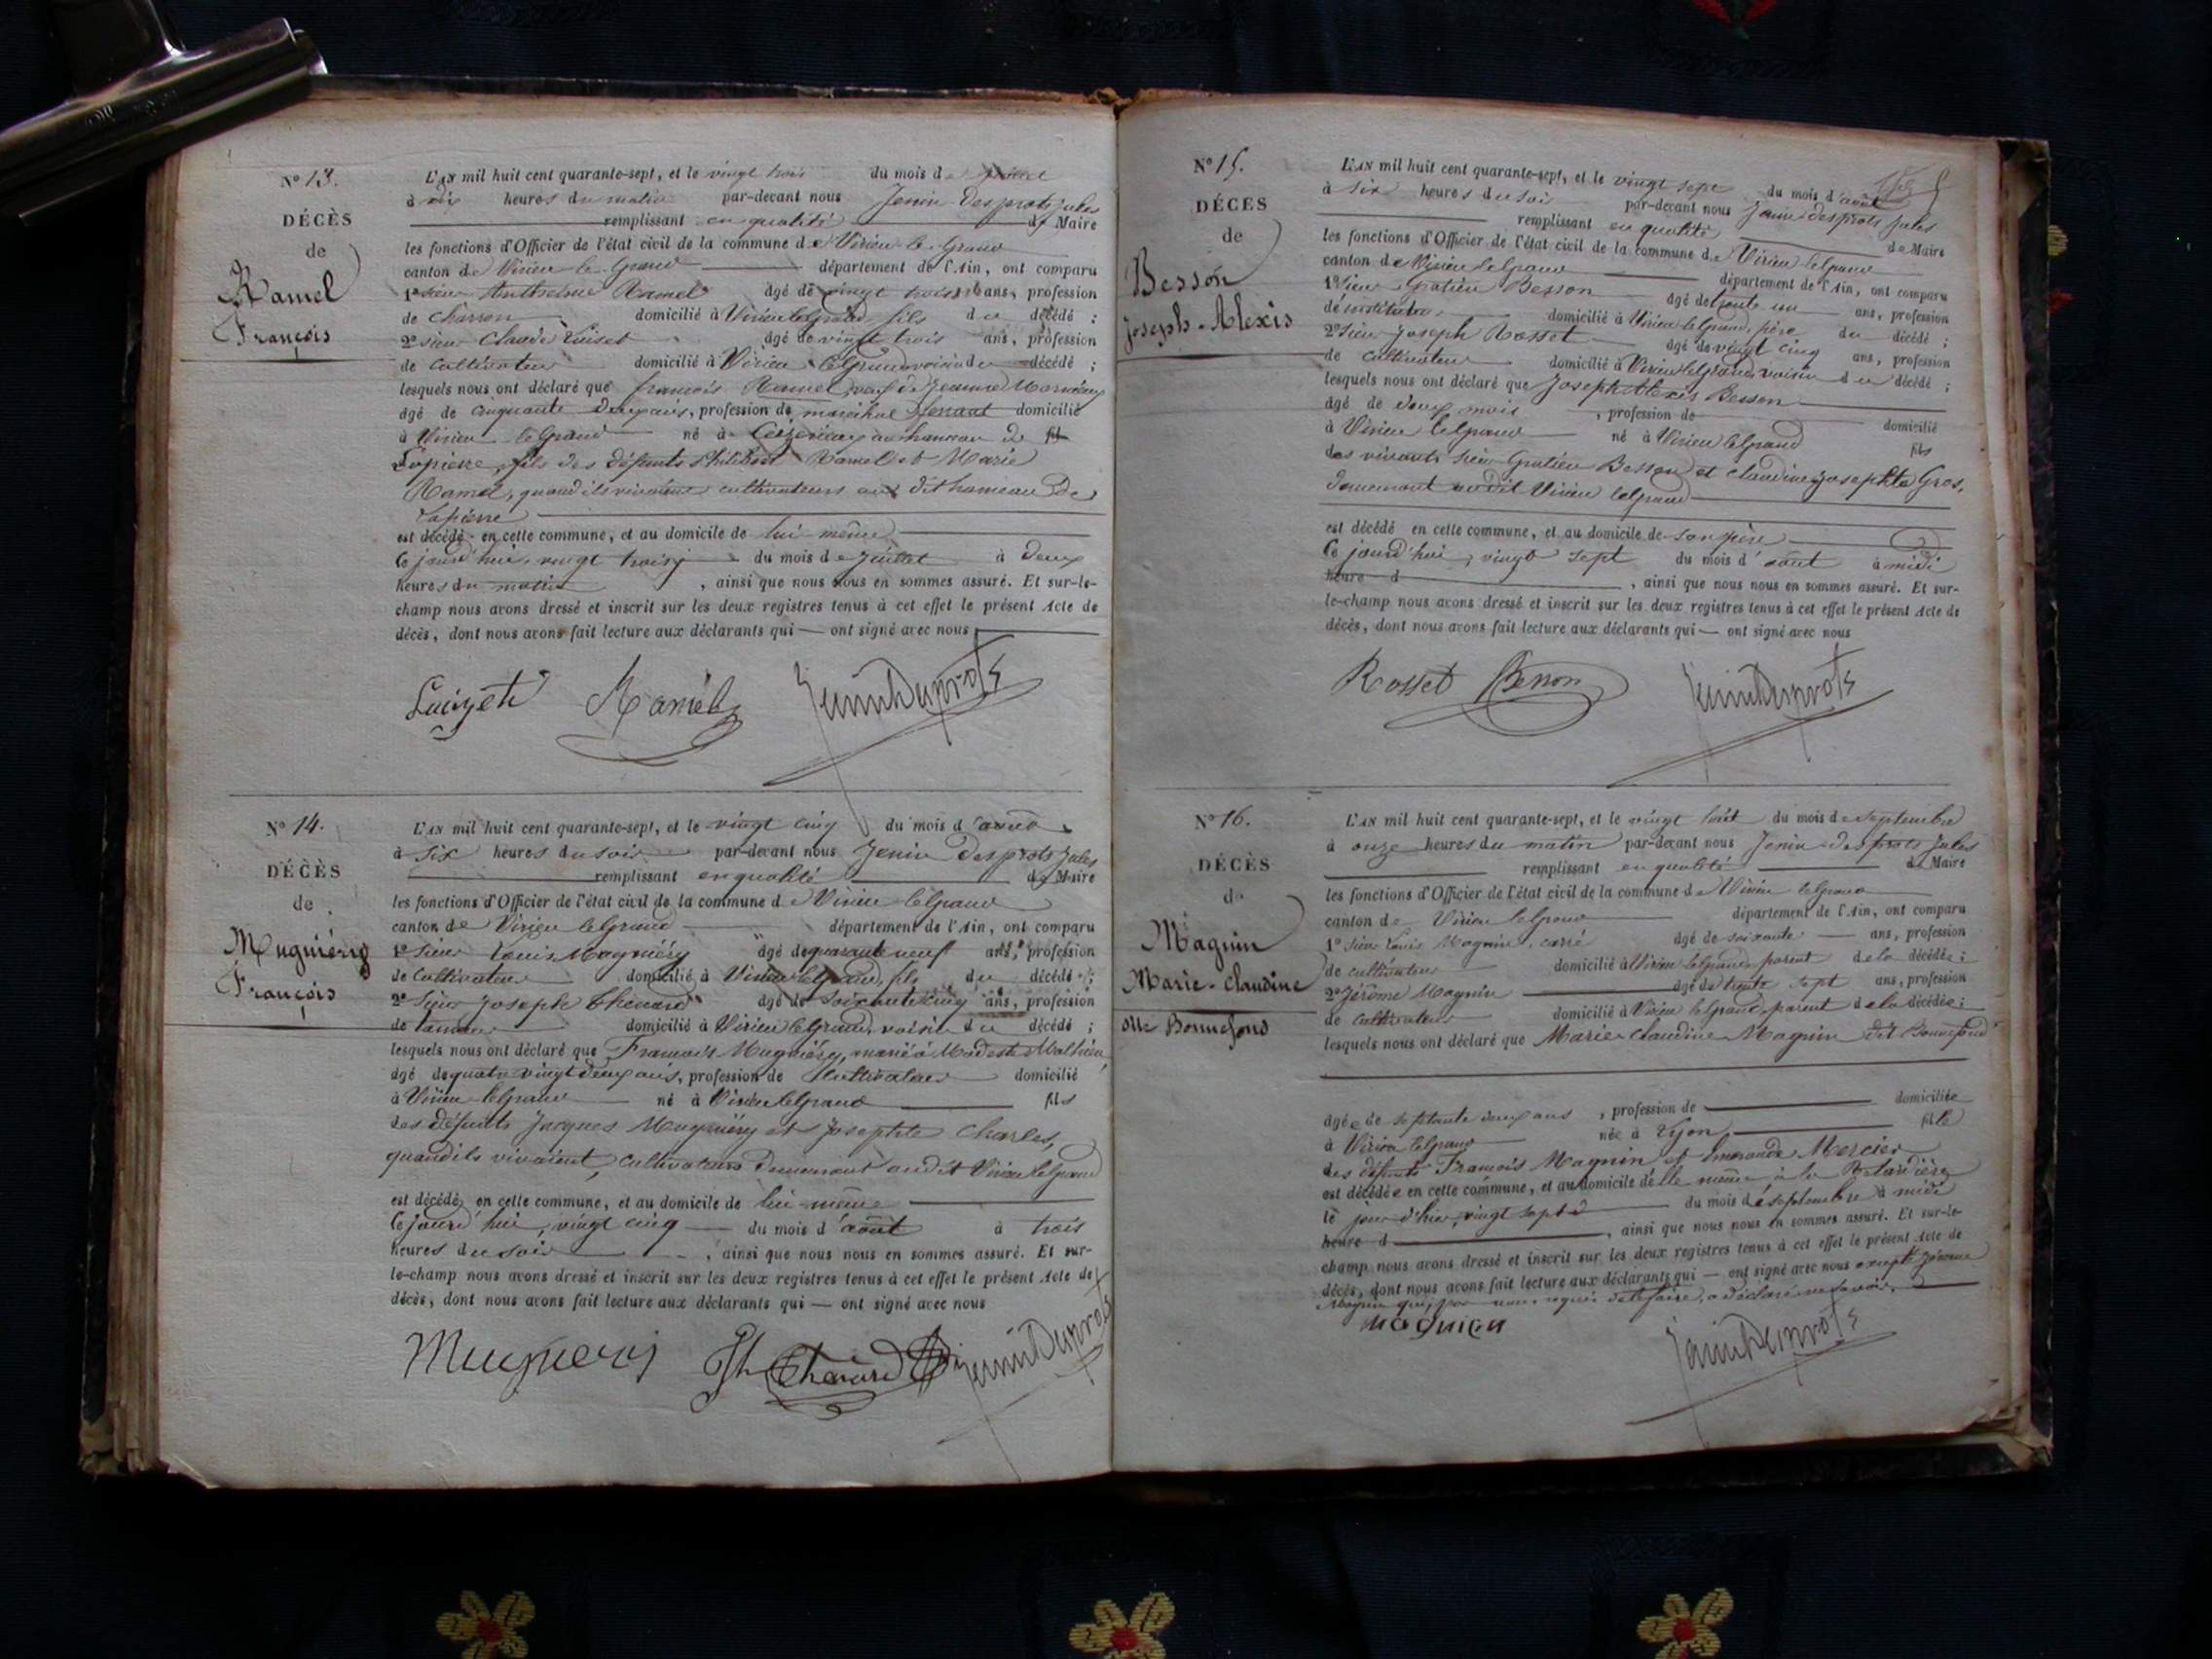 N° 13.
DÉCÈS
de
Ramel
François
L'AN mil huit cent quarante-sept, et le vingt trois du mois de juillet
à dix heures du matin par-devant nous Jenin-Desprots Jules
remplissant en qualité de Maire
les fonctions d'Officier de l'état civil de la commune de Virieu-le-Grand
canton de Virieu le Grand département de l'Ain, ont comparu
1° sieur Anthelme Ramel âgé de vingt trois ans, profession
de charron domicilié à Virieu le Grand, fils du décédé ;
2° sieur Claude Luiset âgé de vingt trois ans, profession
de cultivateur domicilié à Virieu le Grand voisin du décédé ;
lesquels nous ont déclaré que françois Ramel, veuf de Jeanne
âgé de cinquante deux ans, profession de maréchal ferrant domicilié
à Virieu le Grand né à au hameau de fil
Lapierre, fils des défunts Philibert Ramel et Marie
Ramel, quand ils vivaient cultivateurs au dit hameau de
Lapierre
est décédé en cette commune, et au domicile de lui-même
ce jourd'hui, vingt trois du mois de juillet à deux
heures du matin, ainsi que nous nous en sommes assuré. Et sur-le-
champ nous avons dressé et inscrit sur les deux registres tenus à cet effet le présent Acte de
décès, dont nous avons fait lecture aux déclarants qui — ont signé avec nous
Luizet Ramel JeninDesprots
N° 14.
DÉCÈS
de
Muguiéry
François
L'AN mil huit cent quarante-sept, et le vingt cinq du mois d'août
à six heures du soir par-devant nous Jenin Desprots Jules
remplissant en qualité de Maire
les fonctions d'Officier de l'état civil de la commune de Virieu le Grand
canton de Virieu le Grand département de l'Ain, ont comparu
1° sieur Louis Muguiéry âgé de quarante neuf ans, profession
de cultivateur domicilié à Virieu le Grand, fils du décédé ;
2° sieur Joseph Chenard âgé de soixante cinq ans, profession
de domicilié à Virieu le Grand, voisin du décédé ;
lesquels nous ont déclaré que François Muguiéry, marié à Modeste Mathieu
âgé de quatre vingt deux ans, profession de cultivateur domicilié
à Virieu le Grand né à Virieu le Grand fils
des défunts Jacques Muguiéry et Josephte Charles,
quand ils vivaient, cultivateurs demeurant audit Virieu le Grand
est décédé en cette commune, et au domicile de lui-même
ce jourd'hui, vingt cinq du mois d'août à trois
heures du soir, ainsi que nous nous en sommes assuré. Et sur-
le-champ nous avons dressé et inscrit sur les deux registres tenus à cet effet le présent Acte de
décès, dont nous avons fait lecture aux déclarants qui — ont signé avec nous
Muguiery Jh Chenard JeninDesprots
N° 15.
DÉCÈS
de
Besson
Joseph-Alexis
L'AN mil huit cent quarante-sept, et le vingt sept du mois d'août
à six heures du soir par-devant nous Jenin-Desprots Jules
remplissant en qualité de Maire
les fonctions d'Officier de l'état civil de la commune de Virieu le Grand
canton de Virieu le Grand département de l'Ain, ont comparu
1° sieur Gratien Besson âgé de trente un ans, profession
d'instituteur domicilié à Virieu le Grand, père du décédé ;
2° sieur Joseph Rosset âgé de vingt cinq ans, profession
de cultivateur domicilié à Virieu le Grand, voisin du décédé ;
lesquels nous ont déclaré que Joseph Alexis Besson
âgé de deux mois, profession de domicilié
à Virieu le Grand né à Virieu le Grand fils
des vivants sieur Gratien Besson et Claudine Josephte Gros,
demeurant au dit Virieu le Grand
est décédé en cette commune, et au domicile de son père
ce jourd'hui, vingt sept du mois d'août à midi
heure d, ainsi que nous nous en sommes assuré. Et sur-
le-champ nous avons dressé et inscrit sur les deux registres tenus à cet effet le présent Acte de
décès, dont nous avons fait lecture aux déclarants qui — ont signé avec nous
Rosset Besson JeninDesprots
N° 16.
DÉCÈS
de
Magnin
Marie-Claudine
dite Bonnefond
L'AN mil huit cent quarante-sept, et le vingt huit du mois de septembre
à onze heures du matin par-devant nous Jenin-Desprots Jules
remplissant en qualité de Maire
les fonctions d'Officier de l'état civil de la commune de Virieu le Grand
canton de Virieu le Grand département de l'Ain, ont comparu
1° sieur Louis Magnin, carré âgé de soixante ans, profession
de cultivateur domicilié à Virieu le Grand, parent de la décédée ;
2° Jérôme Magnin âgé de trente sept ans, profession
de cultivateur domicilié à Virieu le Grand, parent de la décédée ;
lesquels nous ont déclaré que Marie Claudine Magnin dit Bonnefond
âgée de septante deux ans, profession de domiciliée
à Virieu le Grand née à Lyon fille
des défunts François Magnin et Mercier
est décédée en cette commune, et au domicile d'elle même à la
le jour d'hier, vingt sept du mois de septembre à midi
heure d, ainsi que nous nous en sommes assuré. Et sur-le-
champ nous avons dressé et inscrit sur les deux registres tenus à cet effet le présent Acte de
décès, dont nous avons fait lecture aux déclarants qui — ont signé avec nous excepté Jérôme
Magnin qui, par nous requis de le faire, a déclaré ne savoir.
magnien JeninDesprots